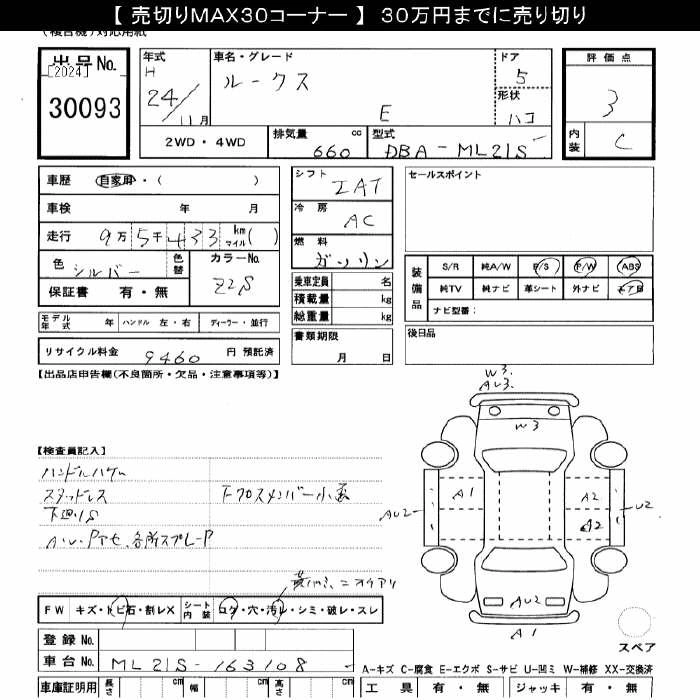 【 売切りMAX30コーナー 】 30万円までに売り切り
(複合機)対応用紙
出品No.
[2024]
30093
年式
H
24/11月
車名・グレード
ルークス
E
ドア
5
形状
ハコ
評価点
3
内装
C
2WD・4WD
排気量 660 cc
型式 DBA-ML21S
車歴 自家用・( )
車検 年 月
走行 9万5千433 km マイル( )
色 シルバー 色替
カラーNo.
Z2S
保証書 有・無
モデル年式 年 ハンドル 左・右 ディーラー・並行
リサイクル料金 9460 円 預託済
シフト
IAT
冷房
AC
燃料
ガソリン
乗車定員 名
積載量 kg
総重量 kg
書類期限
月 日
セールスポイント
装備品
S/R 純A/W P/S P/W ABS
純TV 純ナビ 革シート 外ナビ エアB
ナビ型番:
後日品
【出品店申告欄(不良箇所・欠品・注意事項等)】
【検査員記入】
ハンドルハゲ
スタッドレス
下廻りS
F クロスメンバー小
A・W・Pアセ、各所スプレーP
W3.
AU3.
W3
A1
A2
A2
AU2
U2
AU2
A1
FW キズ・トビ石・割レX
シート内装 コゲ・穴・汚レ・シミ・破レ・スレ
スペア
登録No.
車台No. ML21S-163108
A-キズ C-腐食 E-エクボ S-サビ U-凹ミ W-補修 XX-交換済
車庫証明用 長さ cm 幅 cm 高さ cm
工具 有・無 ジャッキ 有・無